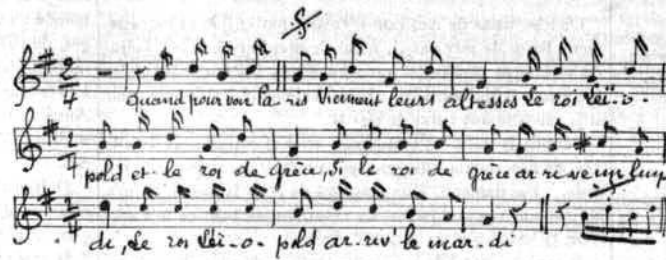 quand pour voir Paris viennent leurs altesses Le roi Léï-o-
pold et le roi de grèce, Si le roi de grèce ar ri ve un lun
di, Le roi Léï-o-pold ar-riv' le mar-di